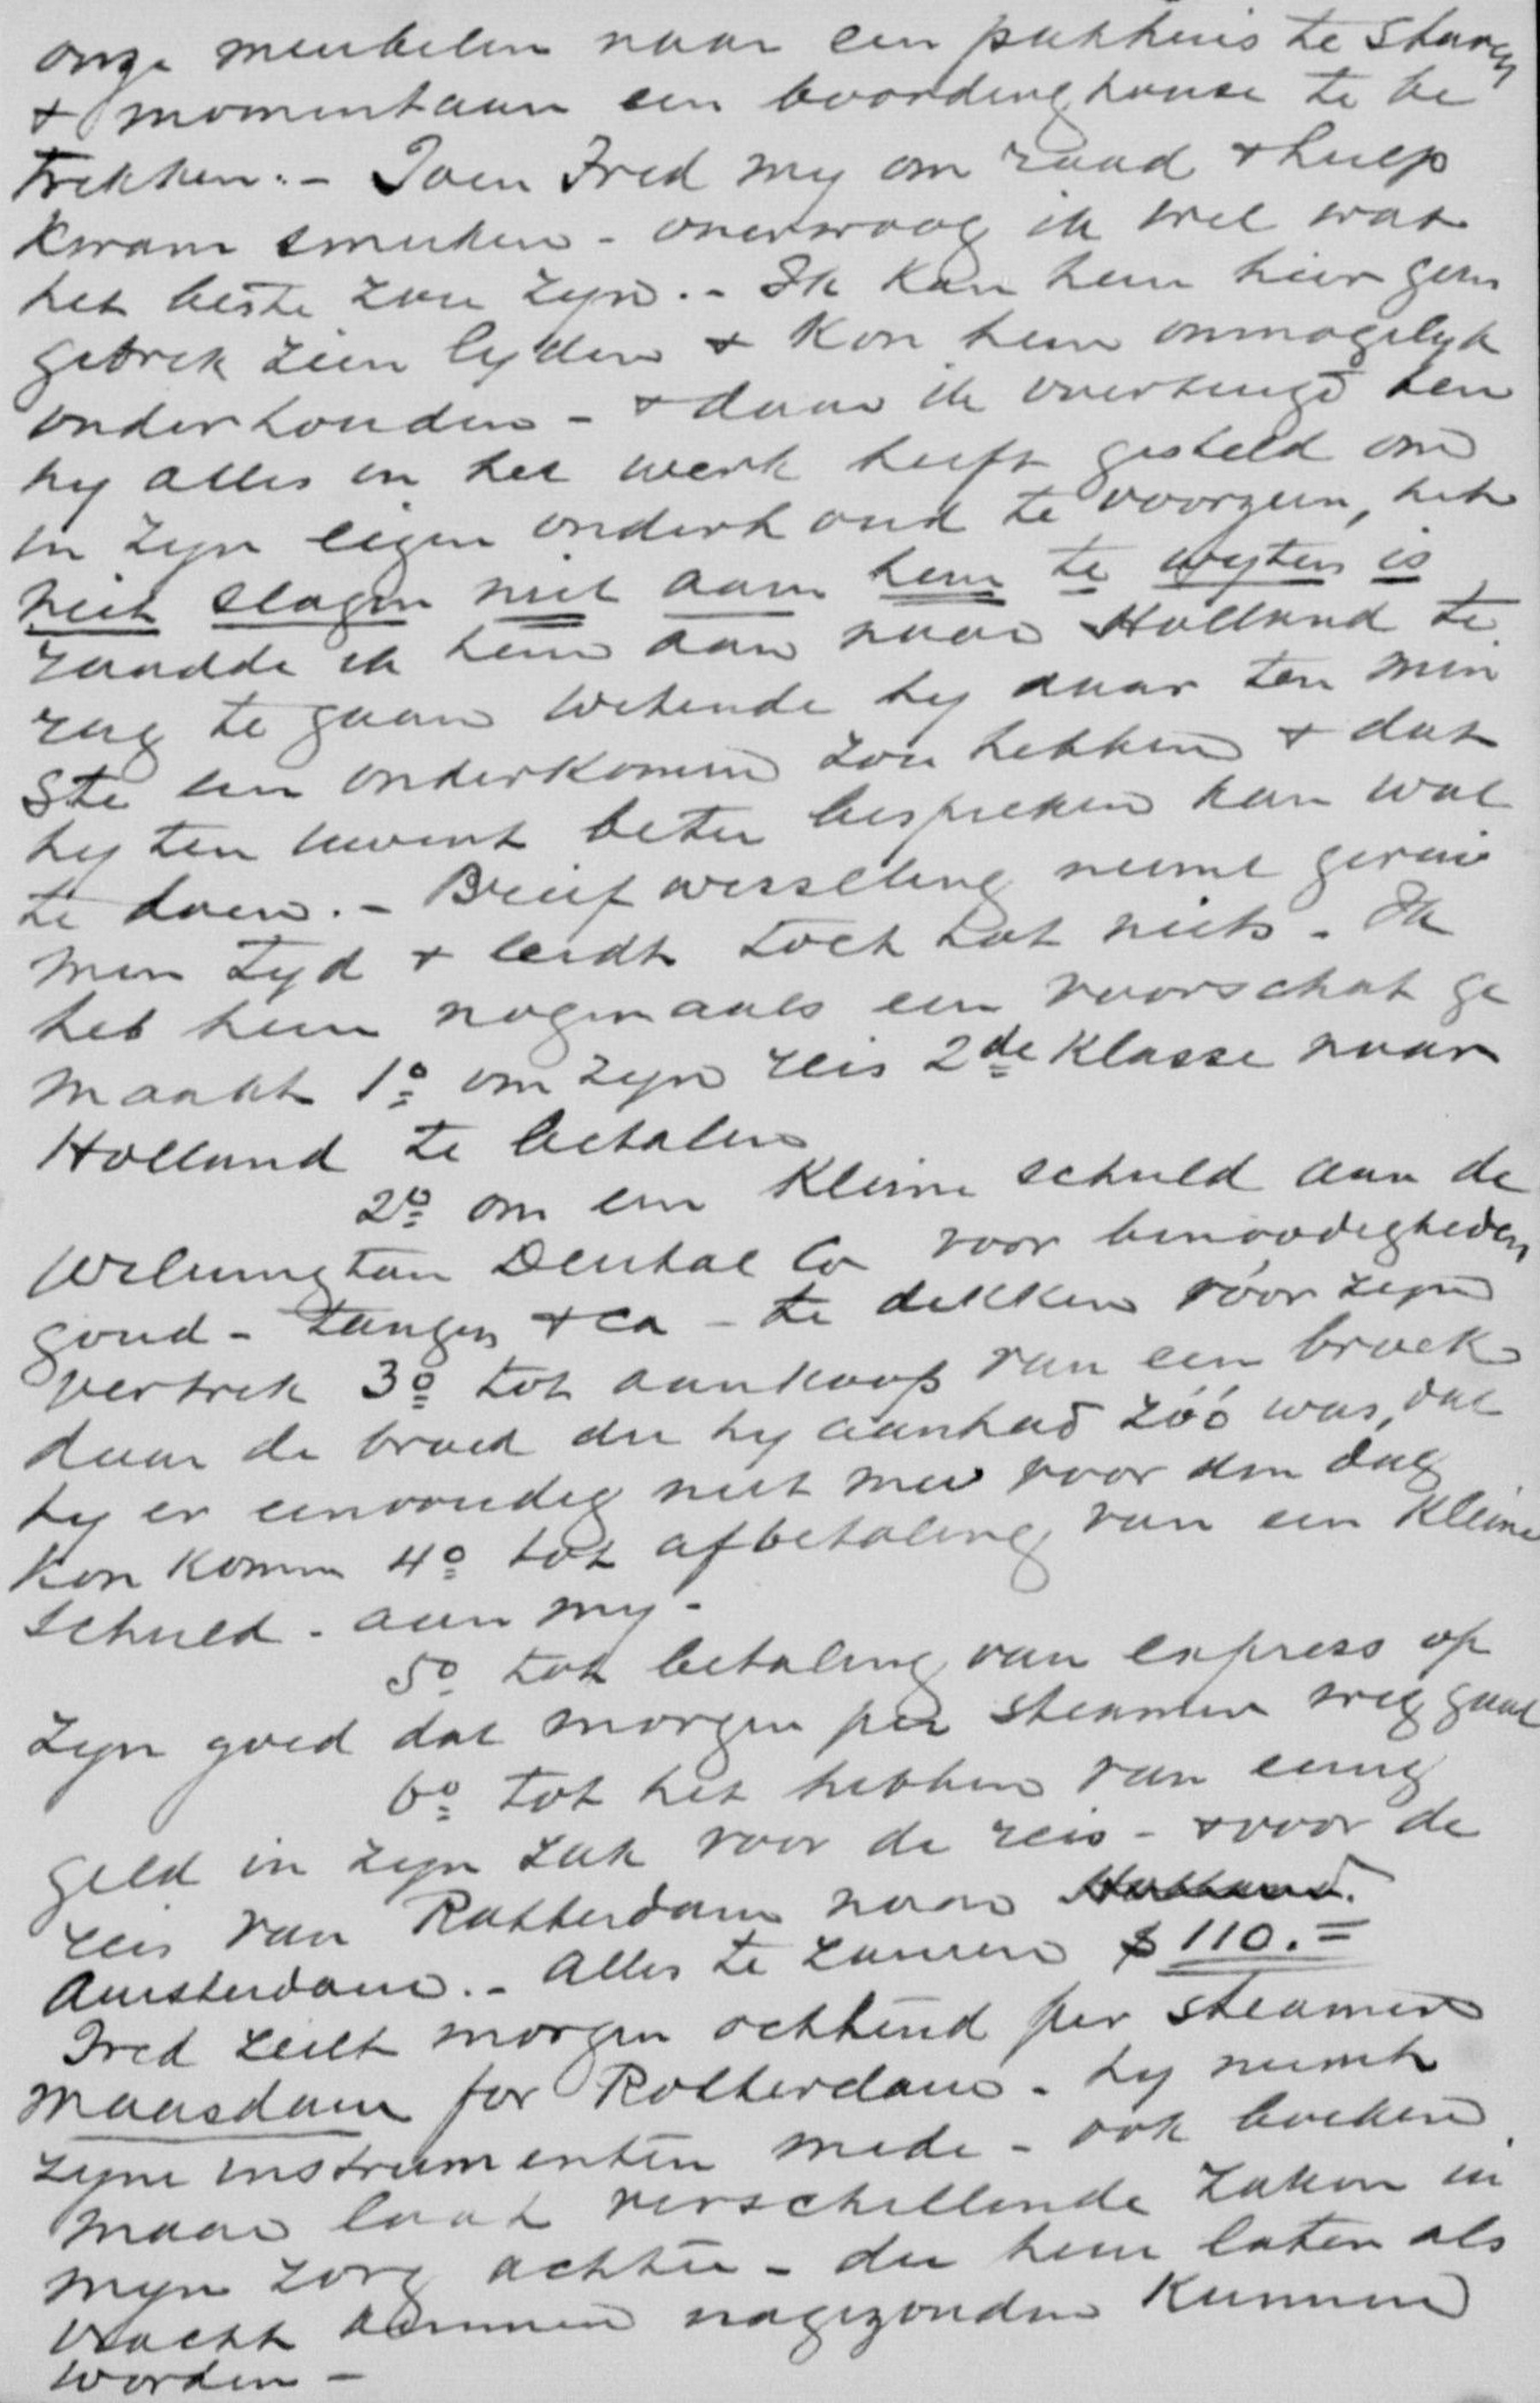 onze meubelen naar een pakhuis te sturen
& momentaan een boardinghouse te be
trekken. - Toen Fred my om raad & hulp
kwam smeeken - overwoog ik wel wat
het beste zou zyn. - Ik kan hem hier geen
gebrek zien lyden & kon hem onmogelyk
onderhouden - & daar ik overtuigd ben
hy alles in het werk heeft gesteld om
in zyn eigen onderhoud te voorzien, het
niet slagen niet aan hem te wyten is
raadde ik hem aan naar Holland te
rug te gaan wetende hy daar ten min
ste een onderkomen zou hebben & dat
hy ten uwent beter bespreken kan wat
te doen. - Briefwisseling neemt gerui
men tyd & leidt toch tot niets - Ik
heb hem nogmaals een voorschot ge
maakt 1º om zyn reis 2de Klasse naar
Holland te betalen
2º om een kleine schuld aan de
Wilmington Dental Co voor benoodigheden
goud - tangen & ca - te dekken vóor zyn
vertrek 3º tot aankoop van een broek
daar de broek die hy aanhad zóó was, dat
hy er eenvoudig niet mee voor den dag
kon komen 4º tot afbetaling van een kleine
schuld - aan my -
5º tot betaling van express op
zyn goed dat morgen per steamer weg gaat
6º tot het hebben van eenig
geld in zyn zak voor de reis - & voor de
reis van Rotterdam naar Holland.
Amsterdam. - Alles te zamen $ 110. =
Fred zeilt morgen ochtend per steamer
Maasdam for Rotterdam - hy neemt
zyne instrumenten mede - ook boeken
maar laat verschillende zaken in
myn zorg achter - die hem later als
vracht nagezonden kunnen
worden -